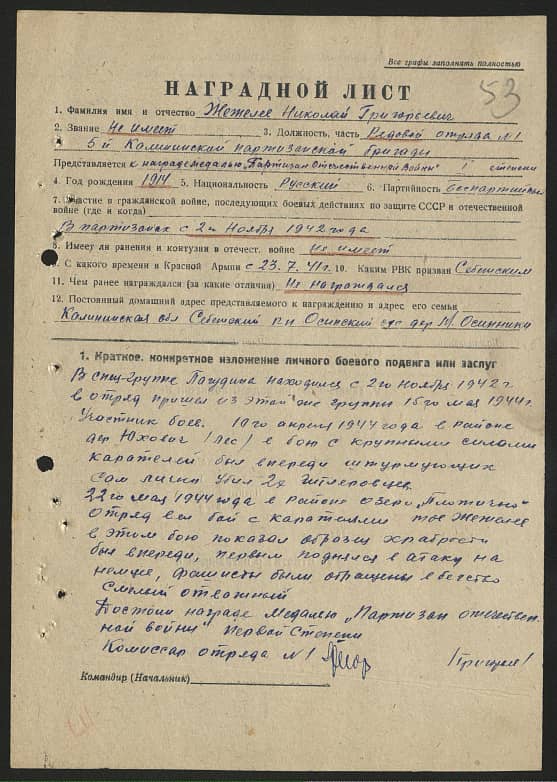 Все графы заполнять полностью
53
НАГРАДНОЙ ЛИСТ
1. Фамилия имя и отчество Жетелев Николай Григорьевич
2. Звание Не имеет 3. Должность, часть Рядовой отряда №1
5й Калининской партизанской бригады
Представляется к награде медалью "Партизан Отечественной Войны" I степени
4. Год рождения 1914 5. Национальность Русский 6. Партийность беспартийный
7. Участие в гражданской войне, последующих боевых действиях по защите СССР и отечественной
войне (где и когда)
В партизанах с 2го Ноября 1942 года
8. Имеет ли ранения и контузии в отечест. войне Не имеет
9. С какого времени в Красной Армии с 23.7.41г. 10. Каким РВК призван Себежским
11. Чем ранее награждался (за какие отличия) Не награждался
12. Постоянный домашний адрес представляемого к награждению и адрес его семьи
Калининская обл Себежский р-н Осинский с/с дер М. Осинники
1. Краткое, конкретное изложение личного боевого подвига или заслуг
В спец-группе Пагудина находился с 2го Ноября 1942 г.
в отряд пришел из этой же группы 15го мая 1944г.
Участник боев. 10го апреля 1944 года в районе
дер Юховичи (лес) в бою с крупными силами
карателей был впереди штурмующих
Сам лично убил 2х гитлеровцев.
22го мая 1944 года в районе озеро "Плотично"
отряд вел бой с карателями тов Жетелев
в этом бою показал образец храбрости
был впереди, первым поднялся в атаку на
немцев, фашисты были обращены в бегство
Смелый отважный
Достоин награде медалью "Партизан отечествен-
ной войны" Первой Степени
Комиссар отряда №1
Командир (Начальник)